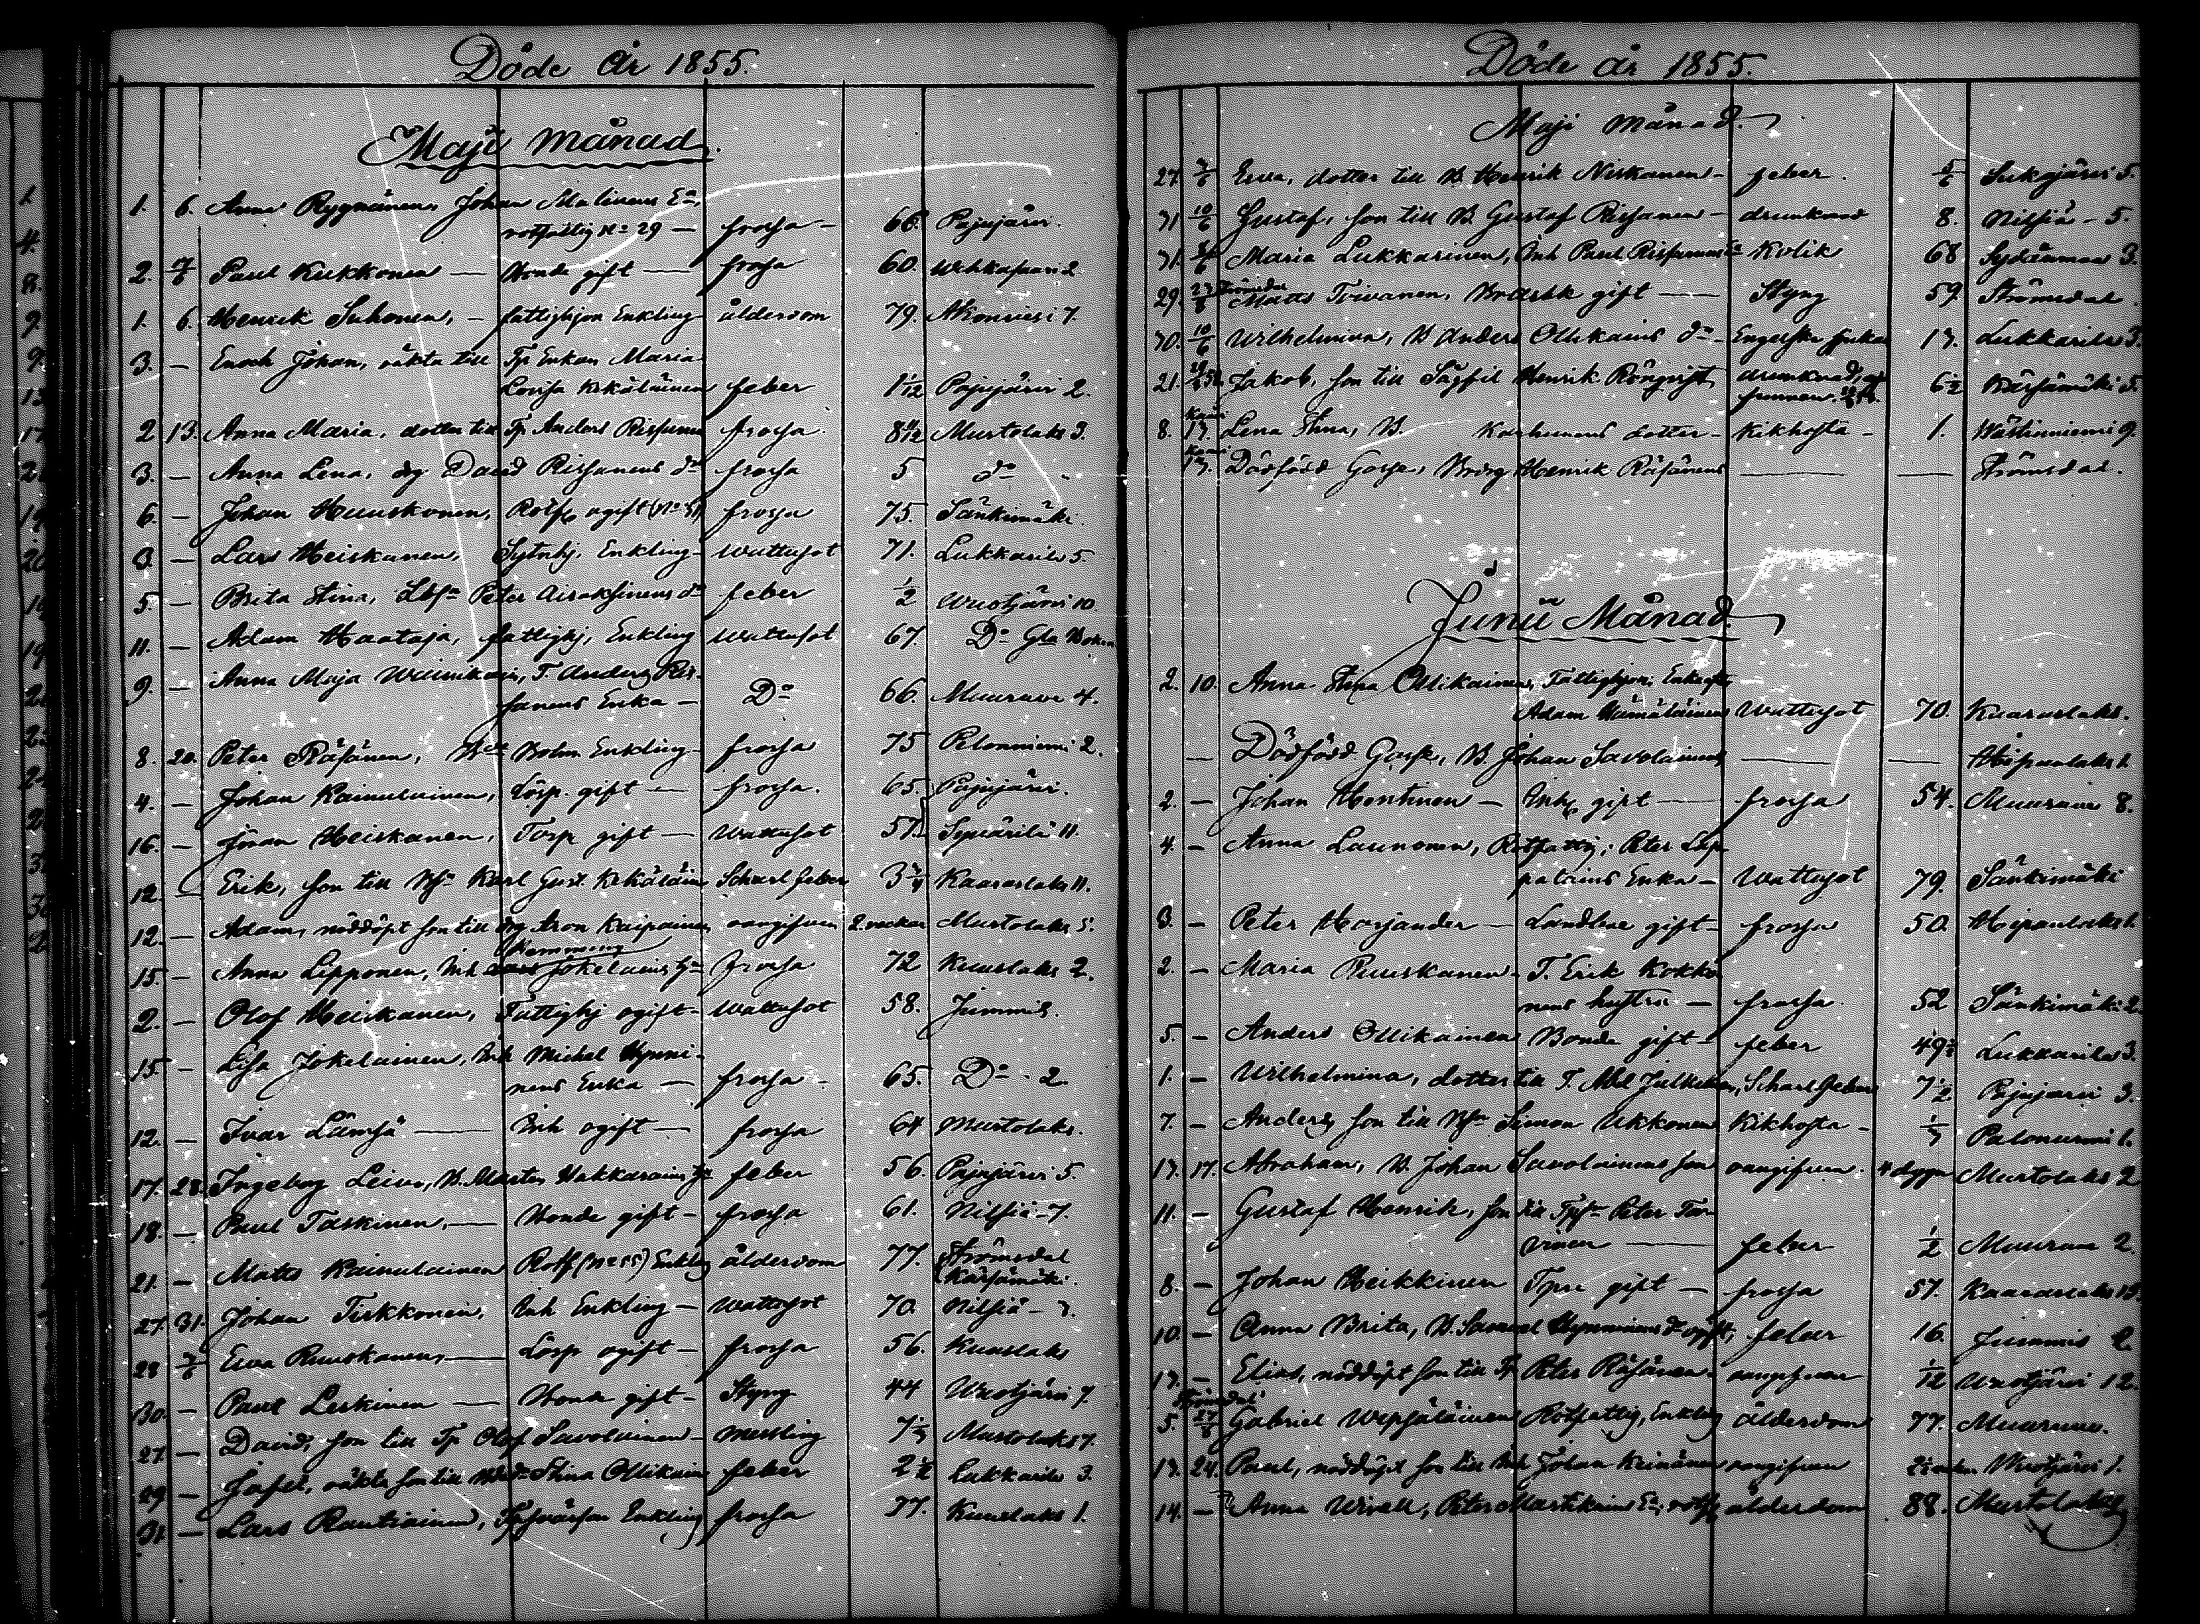 Döde År 1855.
Maji månad.
1. 6. Anna Rygnänen, Johan Malinens Ea,
rotfattig No 29 — frossa — 66. Pajujärvi.
2. 7/6 Paul Kukkonen — Bonde gift — frossa 60. Wehkasaari 2
1. 6. Henrik Suhonen, — fattighjon Enkling ålderdom 79. Akonniemi 7.
3. — Enoch Johan, oäkta till Tp Enkan Maria
Lovisa Kekäläinen feber 1 1/12 Pajujärvi 2.
2 13. Anna Maria, dotter till Tp. Anders Rissanen frossa. Murtolaks 3.
3. — Anna Lena, dg David Rissanens dr frossa 5 do
6. — Johan Huuskonen, Rotf. ogift frossa 75. Sänkimäki.
3. — Lars Heiskanen, Sytnhj. Enkling Wattusot 71. Lukkarila 5.
5. — Brita Stina, Peter Airaksinens dr feber 1/2 Wuotjärvi 10.
11. — Adam Haataja, fattighj, Enkling Wattusot 67. Do Gla Boken
9. — Anna Maja Wäinikain, T. Anders Ris-
sanens Enka — Do 66. Muuruve 4.
8. 20. Peter Räsänen, Bolm. Enkling frossa 75 Pelonniemi 2.
4. — Johan Kainulainen, Lösp. gift — frossa. 65. Pajujärvi.
16. — Johan Heiskanen, Torp gift — Wattusot 51. Sywärilä 11.
12. — Erik, son till Karl Gust. Kekäläin Scharl. feber 3 3/4 Kaaraslaks 11.
12. — Adam, nöddöpt son till dg Aron Kaipainen oangifven 2. veckor Murtolaks 5.
Hemming
15. — Anna Lipponen, Inh Jokelains Ea frossa 72 Kuuslaks 2.
2. — Olof Heiskanen, Fattighj ogift Wattusot 58. Jummis.
15. — Lisa Jokelainen, Inh Michel Hynni-
nens Enka — frossa 65. Do 2
12. — Ivar Lämsä — Inh ogift — frossa 64 Murtolaks.
17. 28. Ingeborg Leino, B. Mårten Hakkarains feber 56. Pajujärvi 5.
18. — Paul Taskinen, — Bonde gift — frossa 61. Nilsiä 7.
21. — Matts Kainulainen Rotf (No 55) Enkling ålderdom 77. Strömsdal
Karsämäki.
27. 31. Johan Tirkkonen, Inh Enkling — Wattusot 70. Nilsiä 3.
28 3/6 Ewa Ruuskanen, — Lösp ogift — frossa 56. Kuuslaks
30. — Paul Leskinen — Bonde gift — Styng 44 Wuotjärvi 7.
27. — David, son till Tp Olof Savolainen — messling Murtolaks 7.
29. — Josef, oäkta son till Stina Ollikain feber Lukkarila 3.
31. — Lars Rautiainen, Enkling frossa 77. Kuuslaks 1.
Döde år 1855.
Maji månad.
27. 3/6 Ewa, dotter till B. Henrik Niskanen — feber. Sukajärvi 5.
31 10/6 Gustaf, son till B. Gustaf Rissanen — drunknad 8. Nilsiä — 5.
31. Maria Lukkarinen, Inh Paul Rissanens Ea Kolik 68 Sydänmaa 3.
Strömsdal
29. Matts Toivanen, Bruksk gift — Styng 59 Strömsdal.
30. 10/6 Wilhelmina, B Anders Ollikains dr Engelska sjukan Lukkarila 3.
21. Jakob, son till Henrik Rönqvist, drunknad, 6 1/2 Karsämäki 5.
8. Lena Stina, B. Karhunens dotter — Kikhosta — 1. Wästinniemi 9.
Dödfödd Gosse, Henrik Räsänens — — Strömsdal.
Junii Månad.
2. 10. Anna Stina Ollikainen, Fattighjon, Enka efter
Adam Hämäläinen Wattusot 70. Kaaraslaks.
— Dödfödd Gosse, B. Johan Savolainens — — Hipanlaks 1.
2. — Johan Hentunen — Inh gift — frossa 54. Muuruve 8.
4. — Anna Launonen, Rotfattig, Peter Lap-
palains Enka — Wattusot 79. Sänkimäki
3. — Peter Horjander — Landbue gift — frossa 50. Hipanlaks 1.
2. — Maria Ruuskanen — T. Erik Kokko-
nens hustru — frossa 52 Sänkimäki 2.
5. — Anders Ollikainen Bonde gift — feber 49 1/2 Lukkarila 3.
1. — Wilhelmina, dotter till T. Mkl Julkunen, Scharl. feber 7 1/2 Pajujärvi 3.
7. — Anders, son till Simon Ukkonen Kikhosta — Palonurmi 1.
13. 17. Abraham, B. Johan Savolainens son oangifven 4 dygn Murtolaks 2
11. — Gustaf Henrik, son till Peter Toi-
vinen — feber 1/2 Muuruve 2.
8. — Johan Heikkinen Tpre gift — frossa 57. Kaaraslaks
10. — Anna Brita, B. Samuel Hynninens d ogift, feber 16. Jummis 2
13. — Elias, nöddöpt son till Tp Peter Räsänen oangifven 1/12 Wuotjärvi 12.
Strömsdal
5. 27/6 Gabriel Wepsäläinen Rotfattig, Enkling ålderdom 77. Muuruve.
13. 24. Paul, nöddöpt son till Inh Johan Keinänen oangifven Wuotjärvi 1.
14. — Anna Wirell, Peter Martikains Ea, rotf. ålderdom 88. Murtolaks